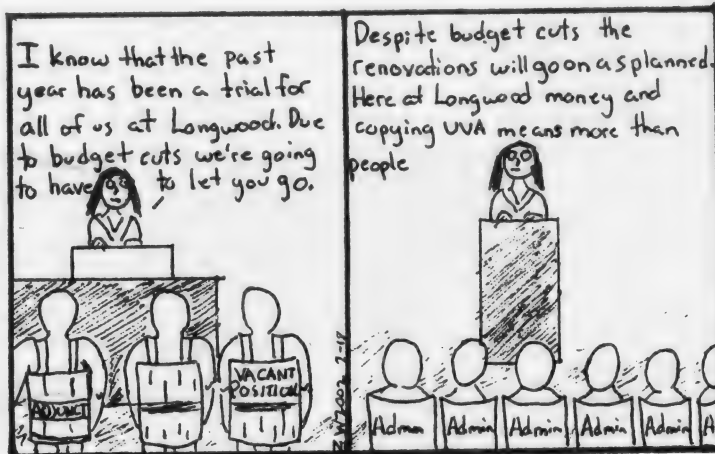 I know that the past
year has been a trial for
all of us at Longwood. Due
to budget cuts we're going
to have to let you go.
ADJUNCT
VACANT
POSITION
2-17
Despite budget cuts the
renovations will go on as planned.
Here at Longwood money and
copying UVA means more than
people
Admin
Admin
Admin
Admin
Admin
A